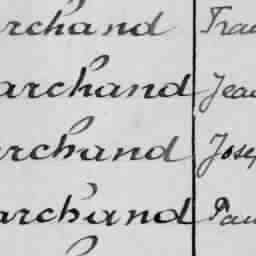 rchand Tra
archand Jea
rchand Jose
archand Pau